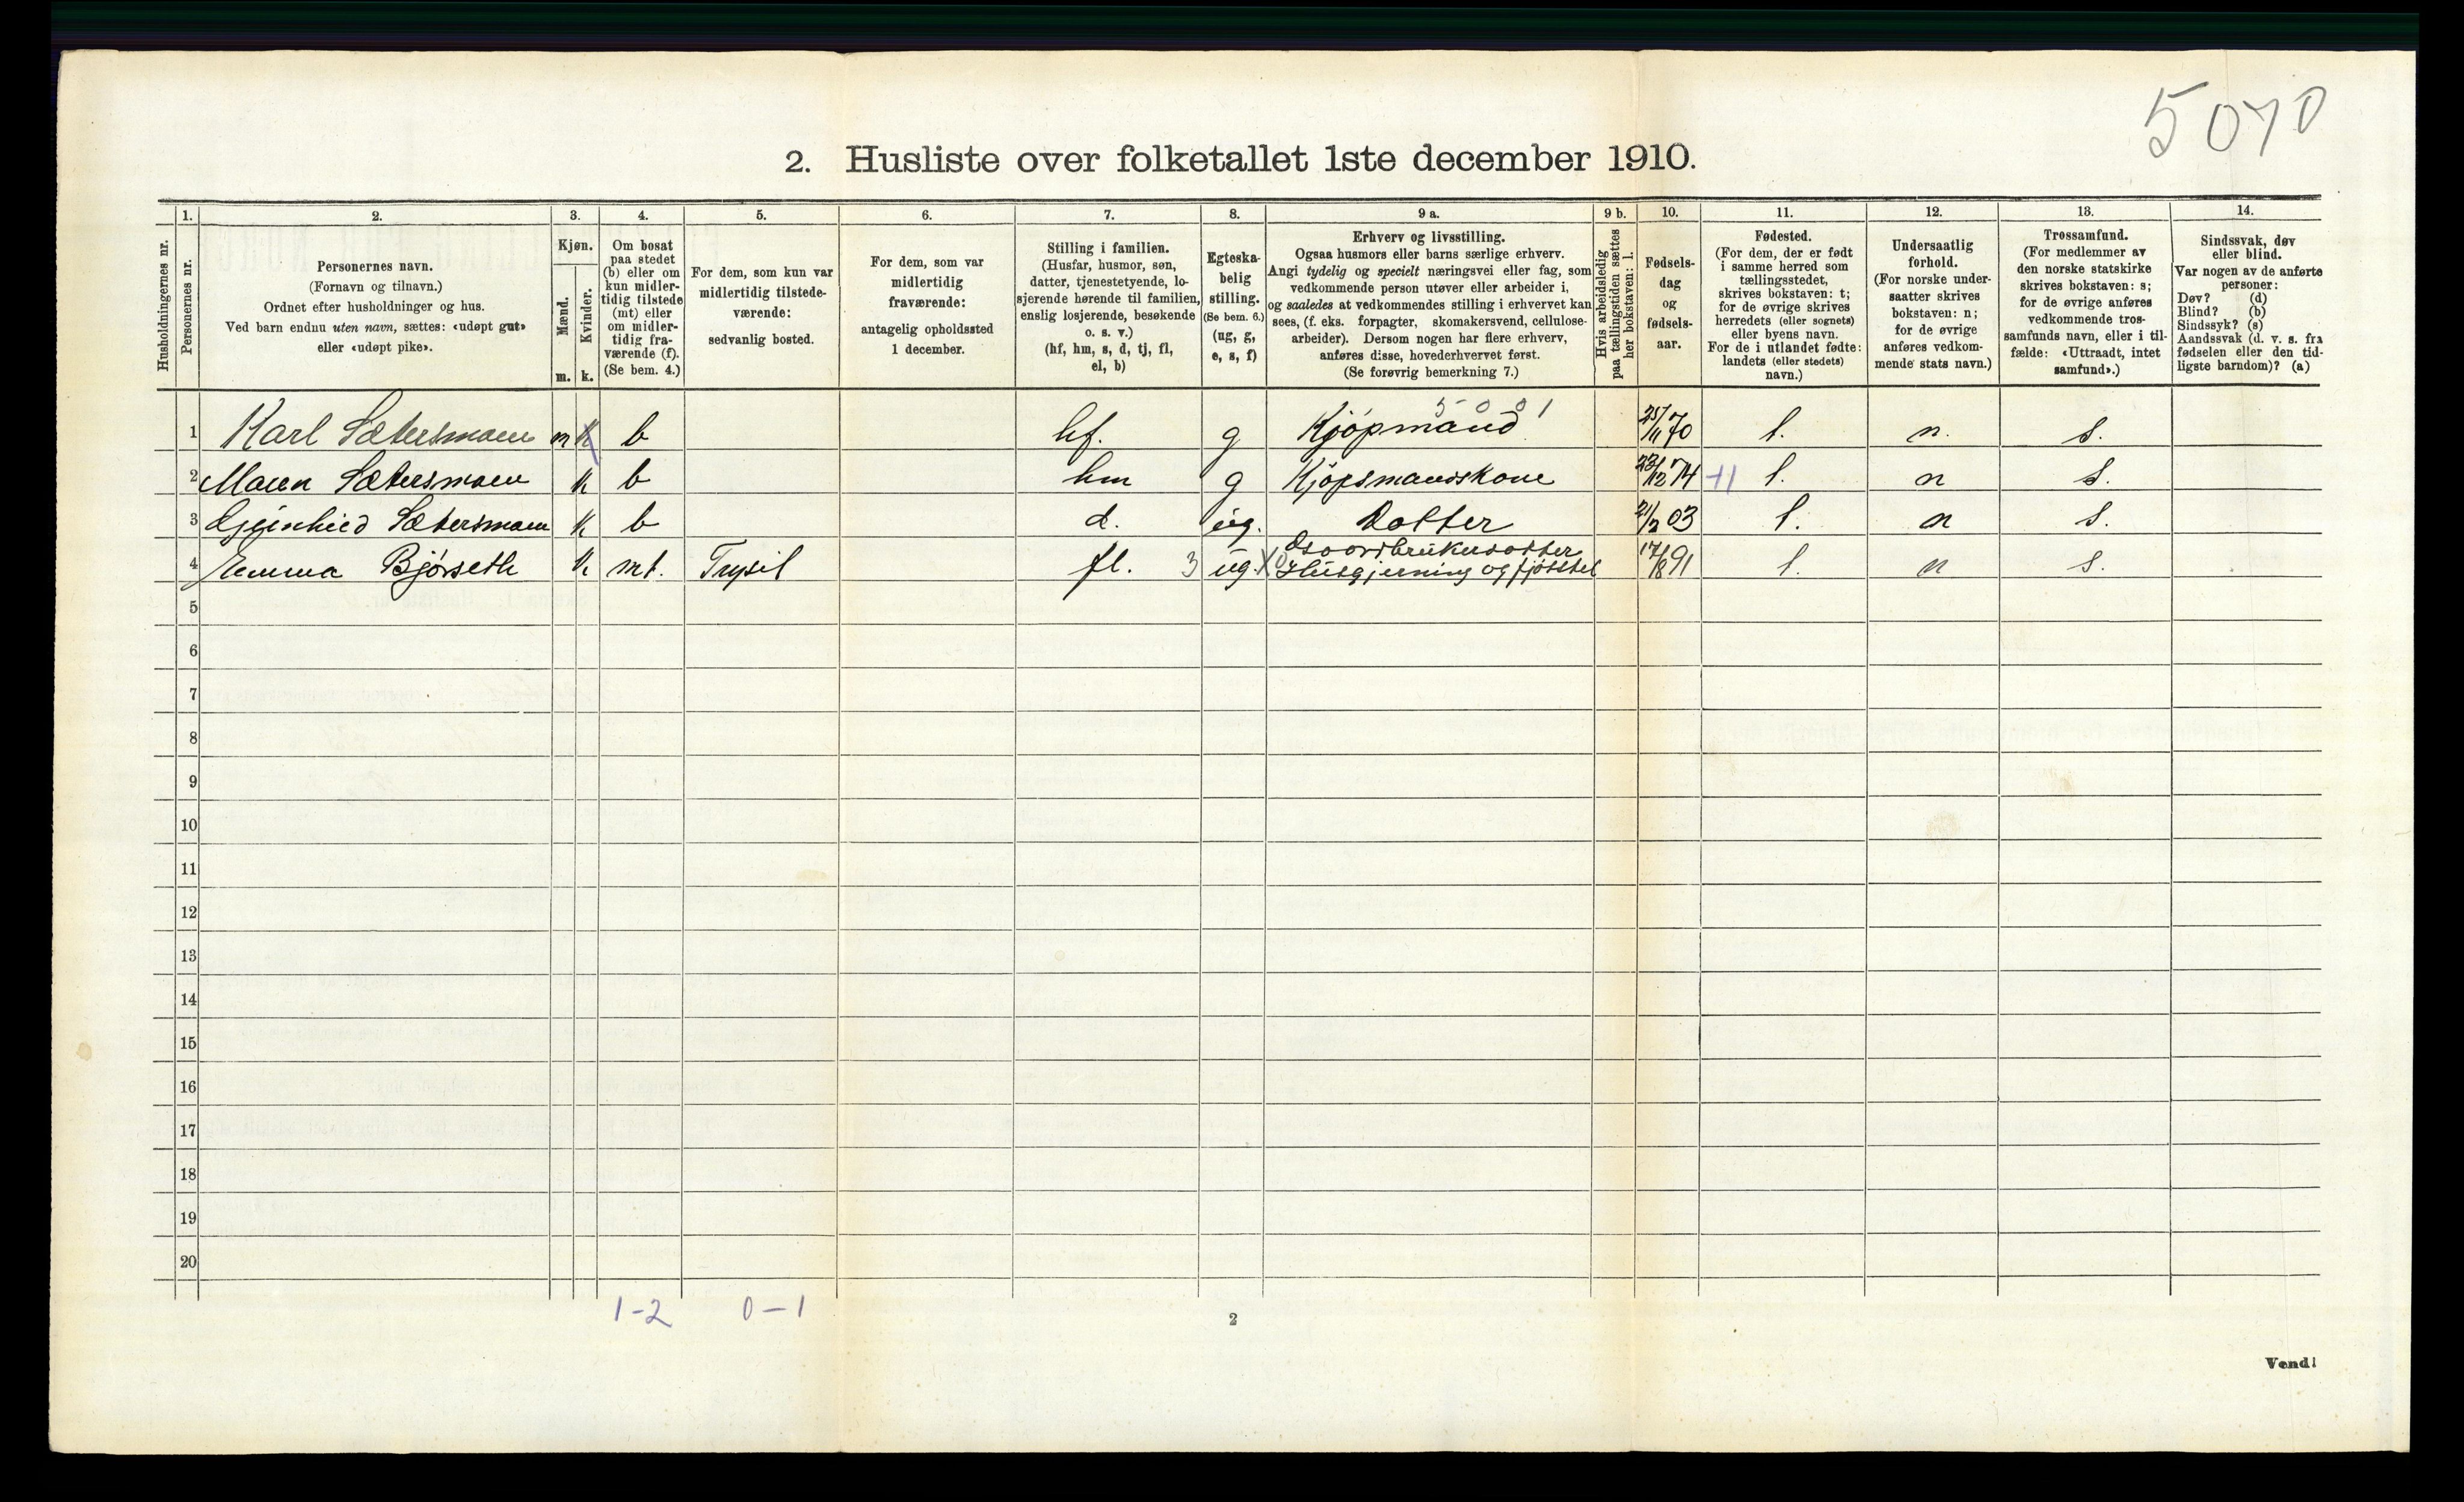 5070
2. Husliste over folketallet 1ste december 1910.
Husholdningernes nr.
1.
Personernes nr.
2.
Personernes navn.
(Fornavn og tilnavn.)
Ordnet efter husholdninger og hus.
Ved barn endnu uten navn, sættes: «udøpt gut»
eller «udøpt pike».
3.
Kjøn.
Mænd.
Kvinder.
m. k.
4.
Om bosat
paa stedet
(b) eller om
kun midler-
tidig tilstede
(mt) eller
om midler-
tidig fra-
værende (f).
(Se bem. 4.)
5.
For dem, som kun var
midlertidig tilstede-
værende:
sedvanlig bosted.
6.
For dem, som var
midlertidig
fraværende:
antagelig opholdssted
1 december.
7.
Stilling i familien.
(Husfar, husmor, søn,
datter, tjenestetyende, lo-
sjerende hørende til familien,
enslig losjerende, besøkende
o. s. v.)
(hf, hm, s, d, tj, fl,
el, b)
8.
Egteska-
belig
stilling.
(Se bem. 6.)
(ug, g,
e, s, f)
9 a.
Erhverv og livsstilling.
Ogsaa husmors eller barns særlige erhverv.
Angi tydelig og specielt næringsvei eller fag, som
vedkommende person utøver eller arbeider i,
og saaledes at vedkommendes stilling i erhvervet kan
sees, (f. eks. forpagter, skomakersvend, cellulose-
arbeider). Dersom nogen har flere erhverv,
anføres disse, hovederhvervet først.
(Se forøvrig bemerkning 7.)
9 b.
Hvis arbeidsledig
paa tællingstiden sættes
her bokstaven: l.
10.
Fødsels-
dag
og
fødsels-
aar.
11.
Fødested.
(For dem, der er født
i samme herred som
tællingsstedet,
skrives bokstaven: t;
for de øvrige skrives
herredets (eller sognets)
eller byens navn.
For de i utlandet fødte:
landets (eller stedets)
navn.)
12.
Undersaatlig
forhold.
(For norske under-
saatter skrives
bokstaven: n;
for de øvrige
anføres vedkom-
mende stats navn.)
13.
Trossamfund.
(For medlemmer av
den norske statskirke
skrives bokstaven: s;
for de øvrige anføres
vedkommende tros-
samfunds navn, eller i til-
fælde: «Uttraadt, intet
samfund».)
14.
Sindssvak, døv
eller blind.
Var nogen av de anførte
personer:
Døv? (d)
Blind? (b)
Sindssyk? (s)
Aandssvak (d. v. s. fra
fødselen eller den tid-
ligste barndom)? (a)
5001
1 Karl Sætersmoen m k b hf. g Kjöpmand 25/11 70 t. n. s.
2 Maren Sætersmoen k b hm g Kjöpsmandskone 23/12 74 t. n s.
3 Sætersmoen k b d. ug. Dotter 21/2 03 t. n s.
Gaardbrukerdotter
4 Emma Bjørseth k mt. Trysil fl. 3 ug. Husgjerning og fjösstel 17/8 91 t. n s.
5
6
7
8
9
10
11
12
13
14
15
16
17
18
19
20
1-2 0-1
2
Vend!